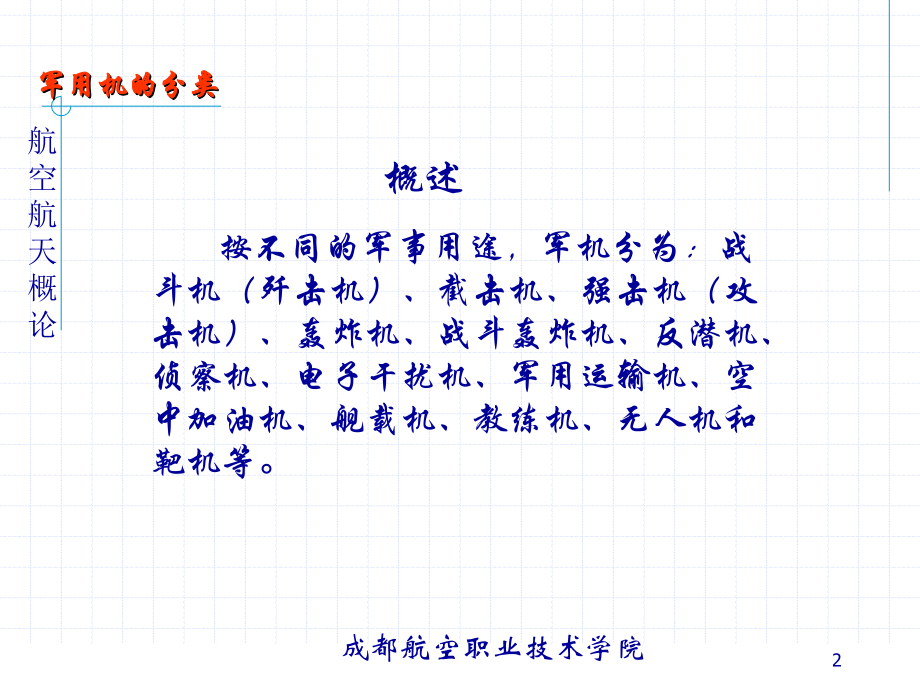 军用机的分类
航空航天概论
概述
按不同的军事用途，军机分为：战
斗机（歼击机）、截击机、强击机（攻
击机）、轰炸机、战斗轰炸机、反潜机、
侦察机、电子干扰机、军用运输机、空
中加油机、舰载机、教练机、无人机和
靶机等。
成都航空职业技术学院
2